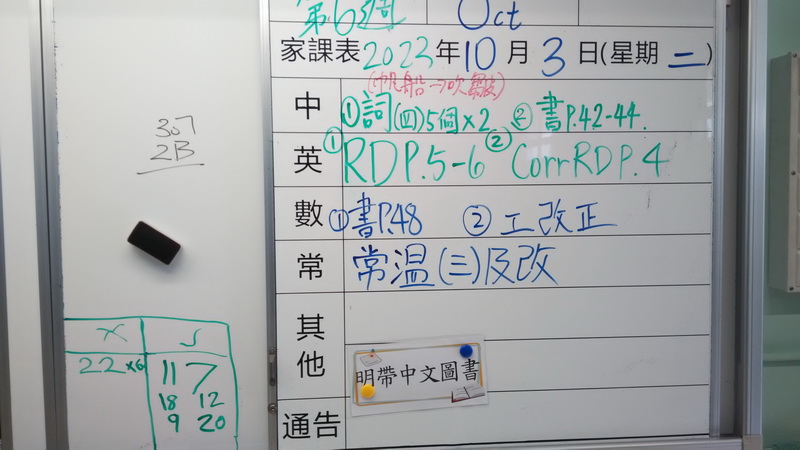 第6週 Oct
家課表2023年10月3日(星期二)
(帆船→吹皺)
中 ①詞(四)5個×2 ②書P.42-44.
英 ①RDP.5-6 ②CorrRDP.4
數 ①書P.48 ②工改正
常 常温(三)及改
其他
明帶中文圖書
通告
307
2B
X S
22×6 11 7
18 12
9 20